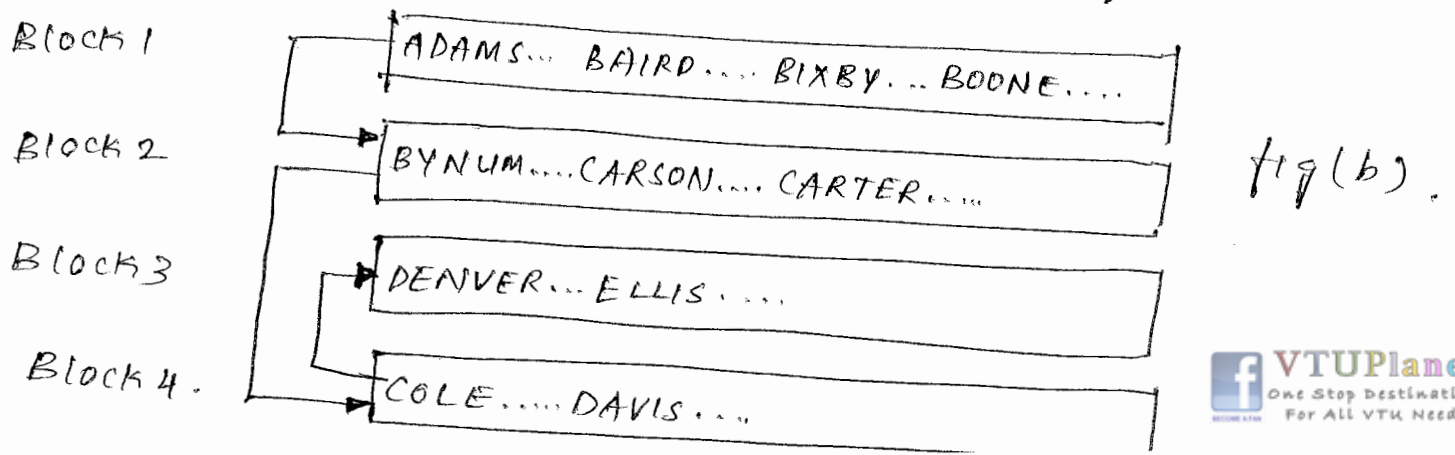 Block 1
ADAMS... BAIRD.... BIXBY... BOONE....
Block 2
BYNUM....CARSON.... CARTER.....
fig(b).
Block 3
DENVER... ELLIS.....
Block 4.
COLE..... DAVIS....
f VTUPlane
One Stop Destinati
For All VTU Need
BECOME A FAN